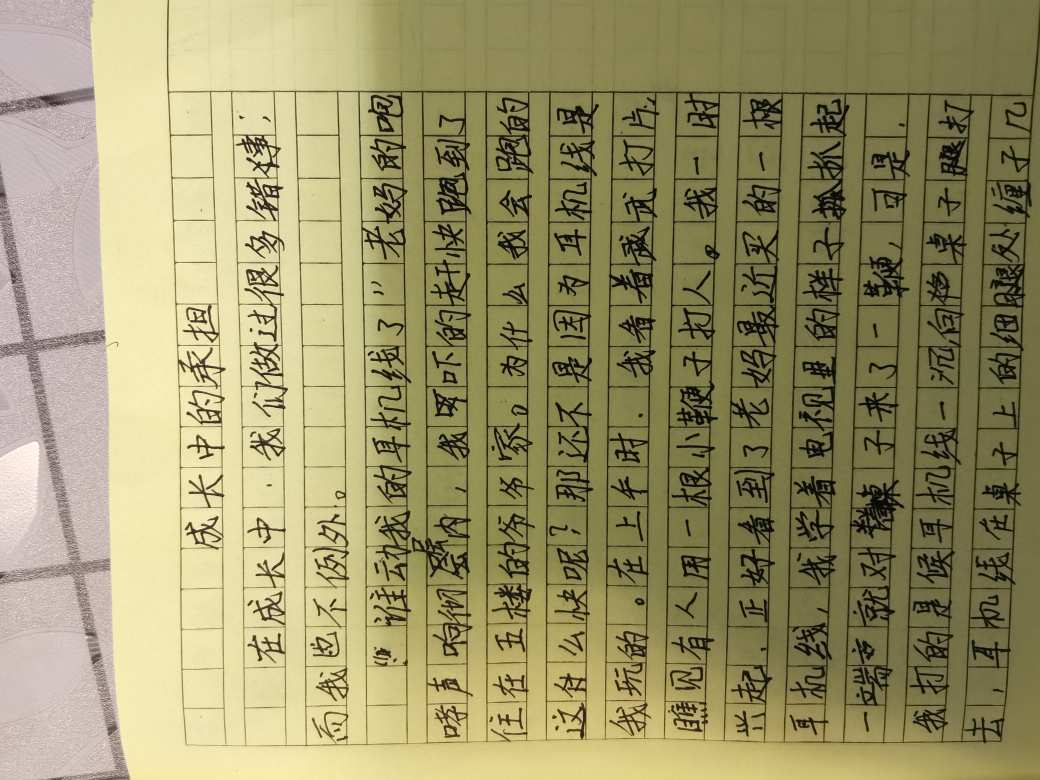 成长中的承担
在成长中，我们做过很多错事，
而我也不例外。
“谁动我的耳机线了”老妈的咆
哮声响彻屋内，我吓的赶快跑到了
住在五楼的爷爷家。为什么我会跑的
这么快呢？那还不是因为耳机线是
我玩的。在上午时，我看着武打片，
瞧见有人用一根小鞭子打人。我一时
兴起，正好看到了老妈最近买的一根
耳机线，我学着电视里的样子抓起
一端就对桌子来了一鞭，可是，
我打的是候耳机线一沉向桌子腿打
去，耳机线在桌子上的细腿处缠了几